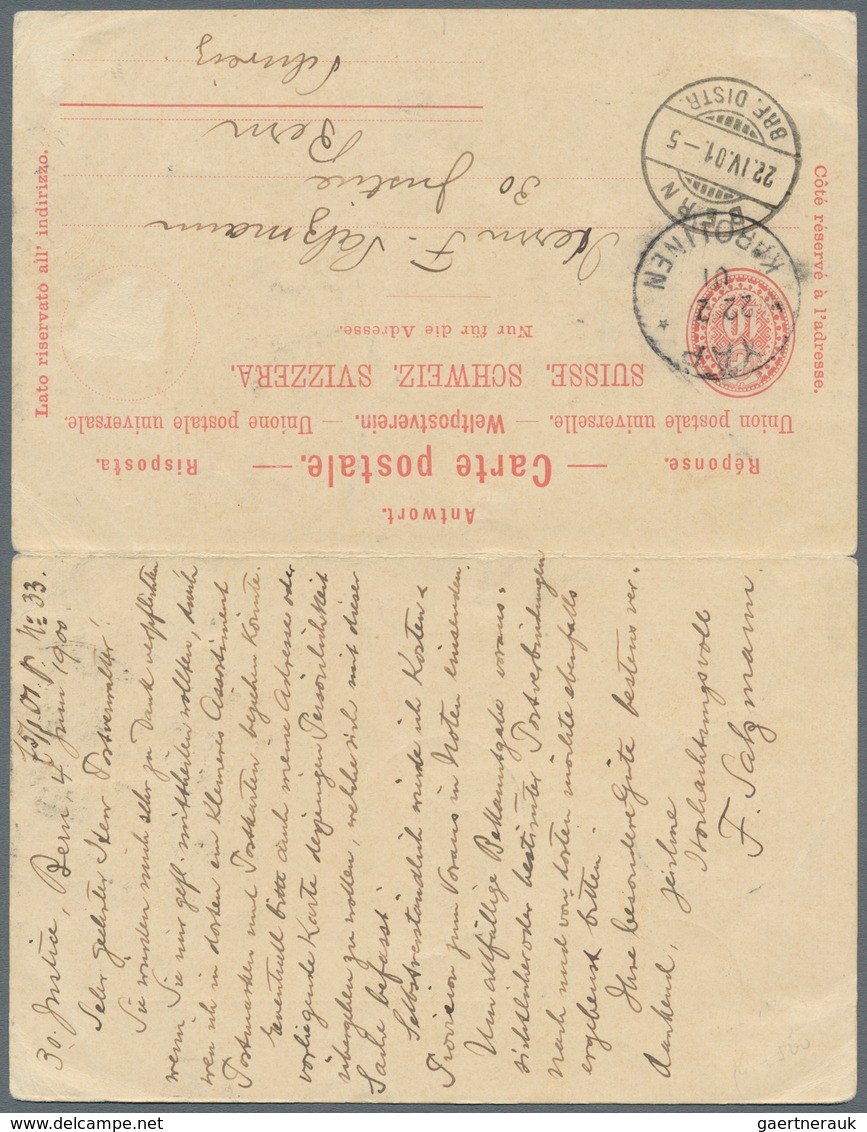 Antwort.
Réponse. — Carte postale. — Risposta.
Union postale universelle. — Weltpostverein. — Unione postale universale.
SUISSE. SCHWEIZ. SVIZZERA.
Nur für die Adresse.
Côté réservé à l'adresse.
Lato riservato all' indirizzo.
10
YAP
22 3
01
KAROLINEN
BERN
22.IV.01.-5
BRF. DISTR.
Herrn F. Salzmann
30 Justice
Bern
Schweiz
No 33.
30. Justice, Bern 4. Juni 1900.
Sehr geehrter Herr Postverwalter!
Sie würden mich sehr zu Dank verpflichten
wenn Sie mir gefl. mittheilen wollten, durch
wen ich in dorten ein kleineres Assortiment
Postmarken und Postkarten beziehen könnte.
Eventuell bitte auch meine Adresse oder
vorliegende Karte derjenigen Persönlichkeit
übergeben zu wollen, welche sich mit dieser
Sache befasst.
Selbstverständlich würde ich Kosten &
Provision zum Voraus in Noten einsenden.
Um allfällige Bekanntgabe voraus-
sichtlicher oder bestimter Postverbindungen
nach und von dorten möchte ebenfalls
ergebenst bitten.
Ihre besondere Güte bestens ver-
dankend, zeichne
Hochachtungsvoll
F. Salzmann.
gaertnerauk @ www.delcampe.net